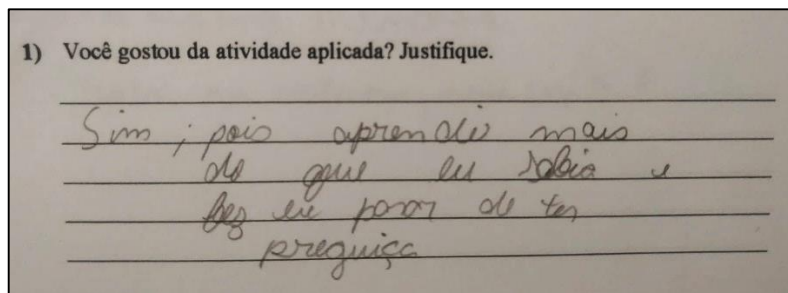 1) Você gostou da atividade aplicada? Justifique.
Sim, pois aprendi mais
do que eu sabia e
fez eu parar de ter
preguiça